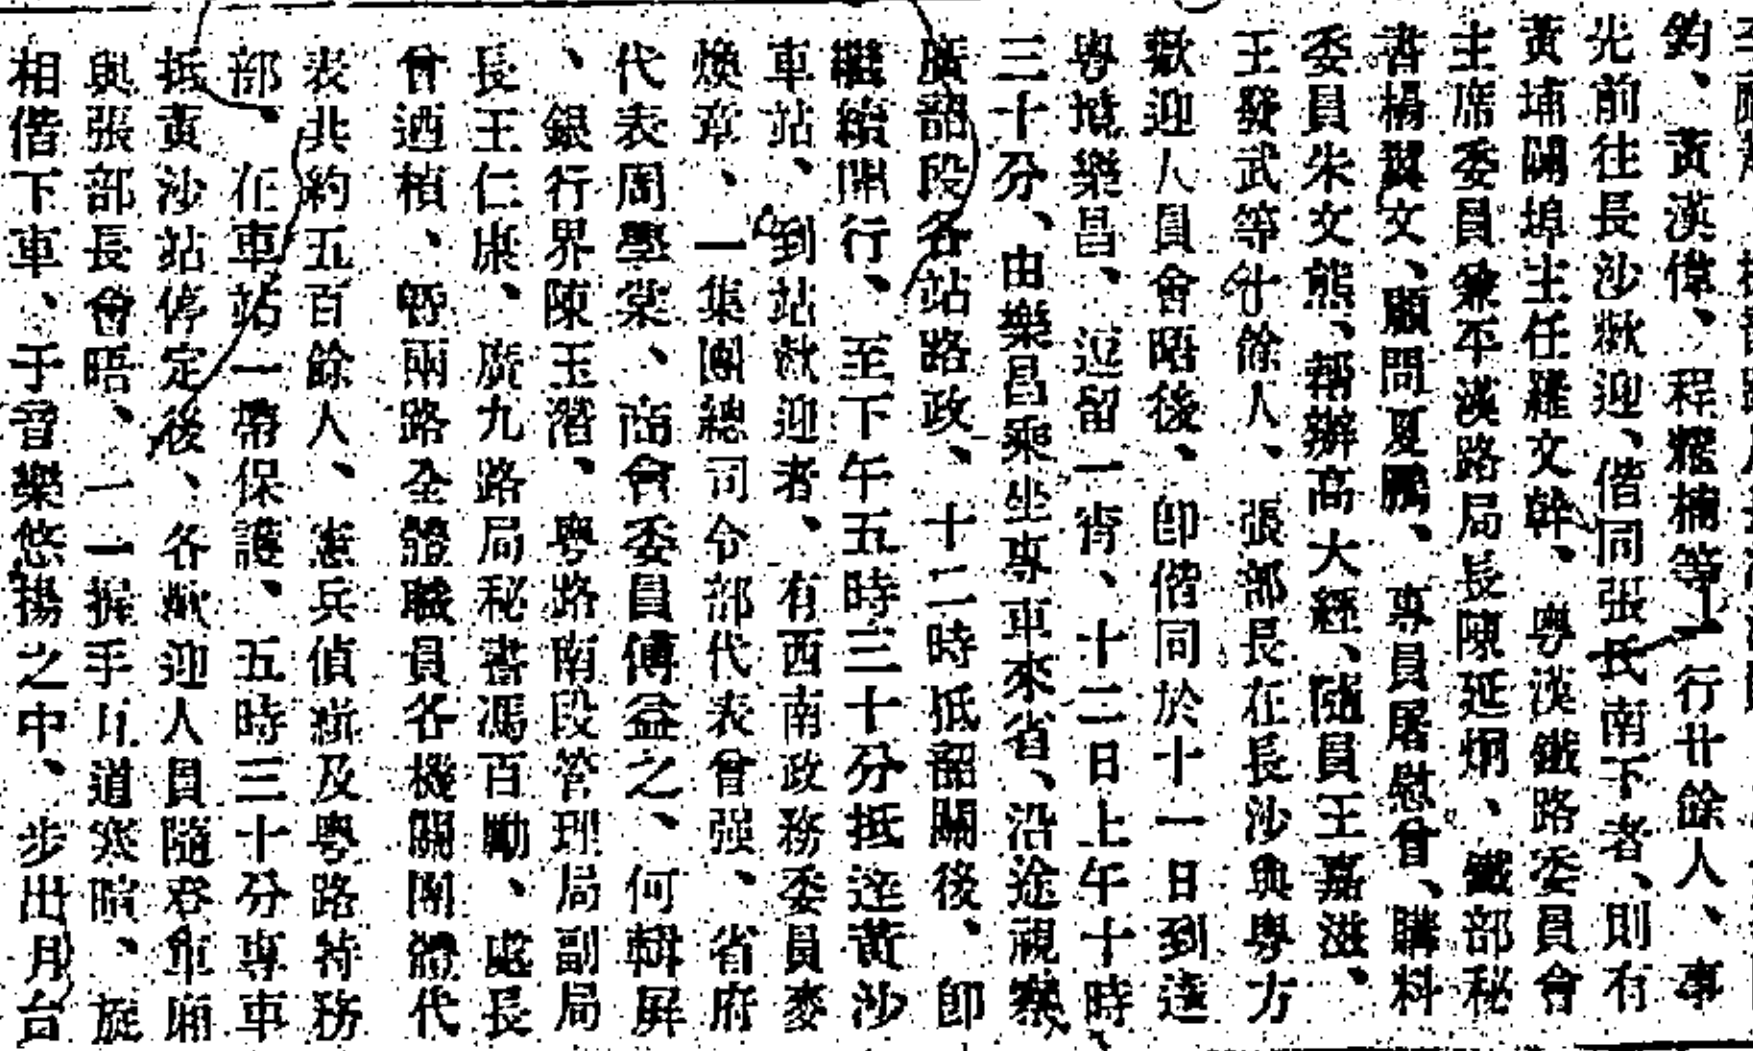 鈞、黃漢偉、程耀楠等一行廿餘人、事
先前往長沙歡迎、偕同張氏南下者、則有
黃埔關埠主任羅文幹、粵漢鐵路委員會
主席委員兼平漢路局長陳延炯、鐵部秘
書楊翼文、顧問夏鵬、專員屠慰曾、購料
委員朱文熊、幫辦高大經、隨員王嘉滋、
王發武等廿餘人、張部長在長沙與粵方
歡迎人員會晤後、即偕同於十一日到達
粵境樂昌、逗留一宵、十二日上午十時
三十分、由樂昌乘坐專車來省、沿途視察
廣韶段各站路政、十二時抵韶關後、即
繼續開行、至下午五時三十分抵達黃沙
車站、到站歡迎者、有西南政務委員麥
煥章、一集團總司令部代表曾强、省府
代表周學棠、商會委員傅益之、何輯屏
、銀行界陳玉潛、粵路南段管理局副局
長王仁康、廣九路局秘書馮百勵、處長
曾迺楨、暨兩路全體職員各機關團體代
表共約五百餘人、憲兵偵緝及粵路特務
部、在車站一帶保護、五時三十分專車
抵黃沙站停定後、各歡迎人員隨登車廂
與張部長會晤、一一握手互道寒暄、旋
相偕下車、于音樂悠揚之中、步出月台